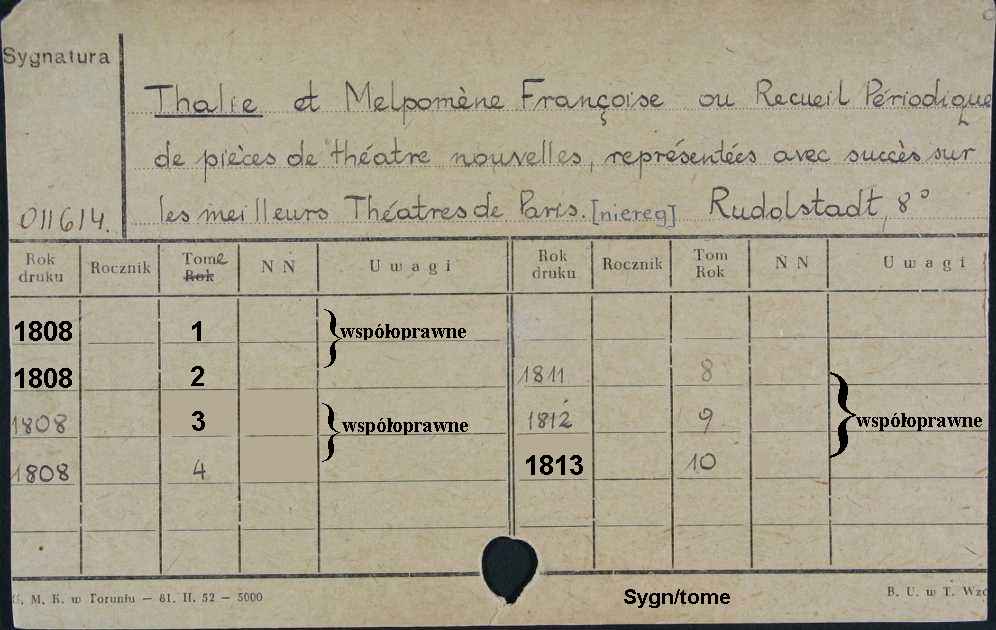 Sygnatura
Thalie et Melpomène Françoise ou Recueil Périodique
de pièces de théatre nouvelles, représentées avec succès sur
les meilleurs Théatres de Paris. [niereg] Rudolstadt, 8°
011614.
Rok druku Rocznik Tome Rok N N Uwagi Rok druku Rocznik Tom Rok N N Uwagi
1808 1 } współoprawne
1808 2 1811 8
1808 3 } współoprawne 1812 9 } współoprawne
1808 4 1813 10
M. K. w Toruniu — 61. II. 52 — 5000
Sygn/tome
B. U. w T.